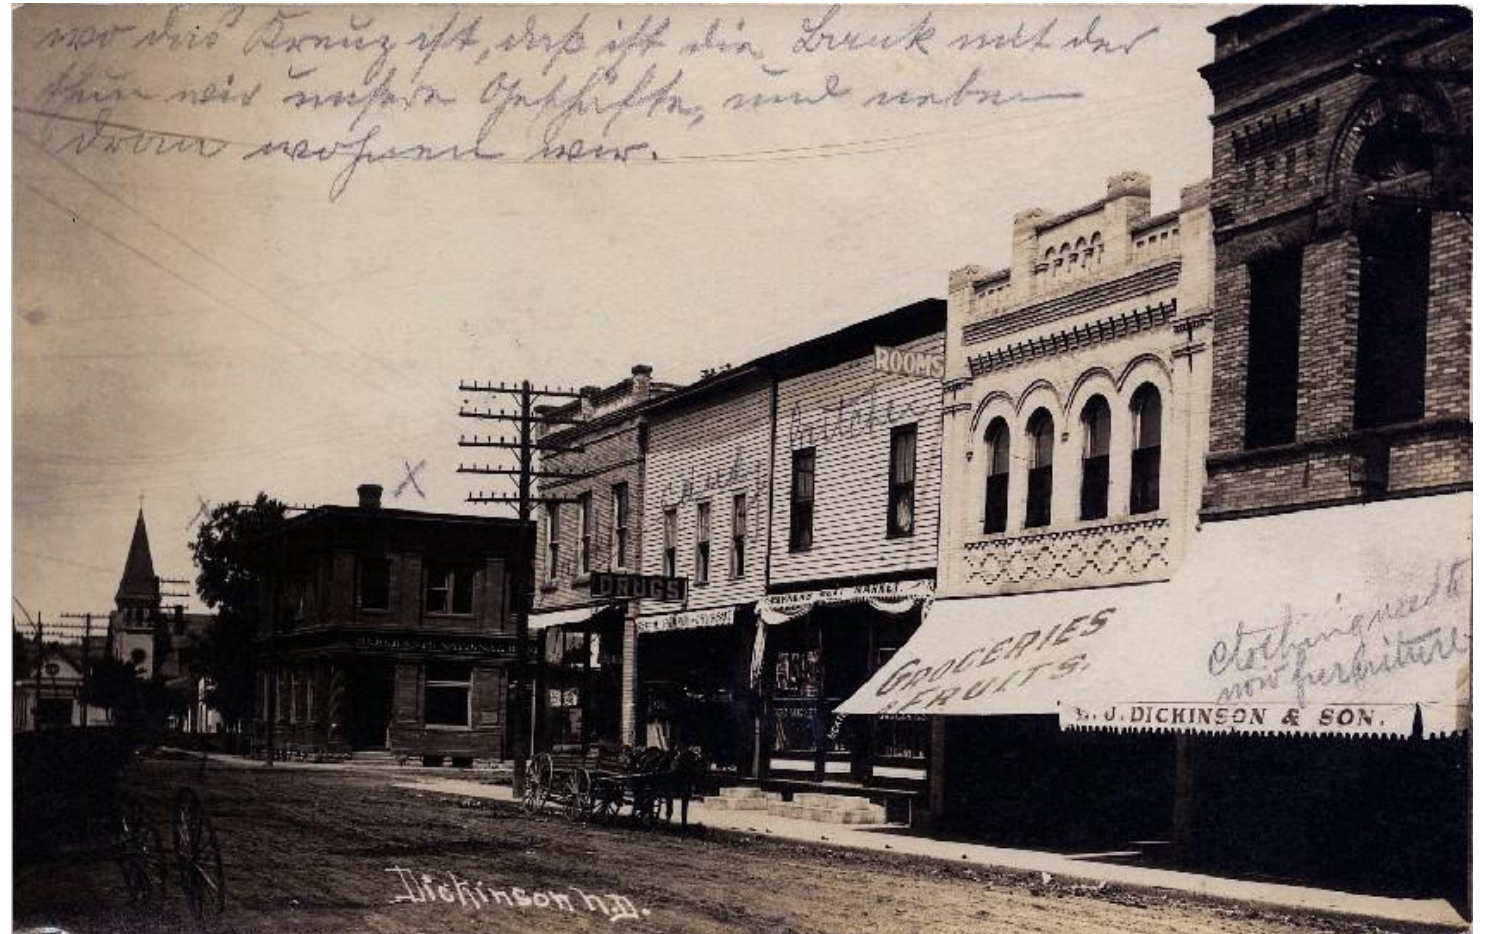 wo das Kreuz ist, daß ist die Bank mit der
thun wir unsere Geschäfte, und neben
dran wohnen wir.
ROOMS
X
DRUGS
MEAT MARKET.
GROCERIES
& FRUITS.
Clothing need to
now furniture
J. DICKINSON & SON.
Dickinson N.D.